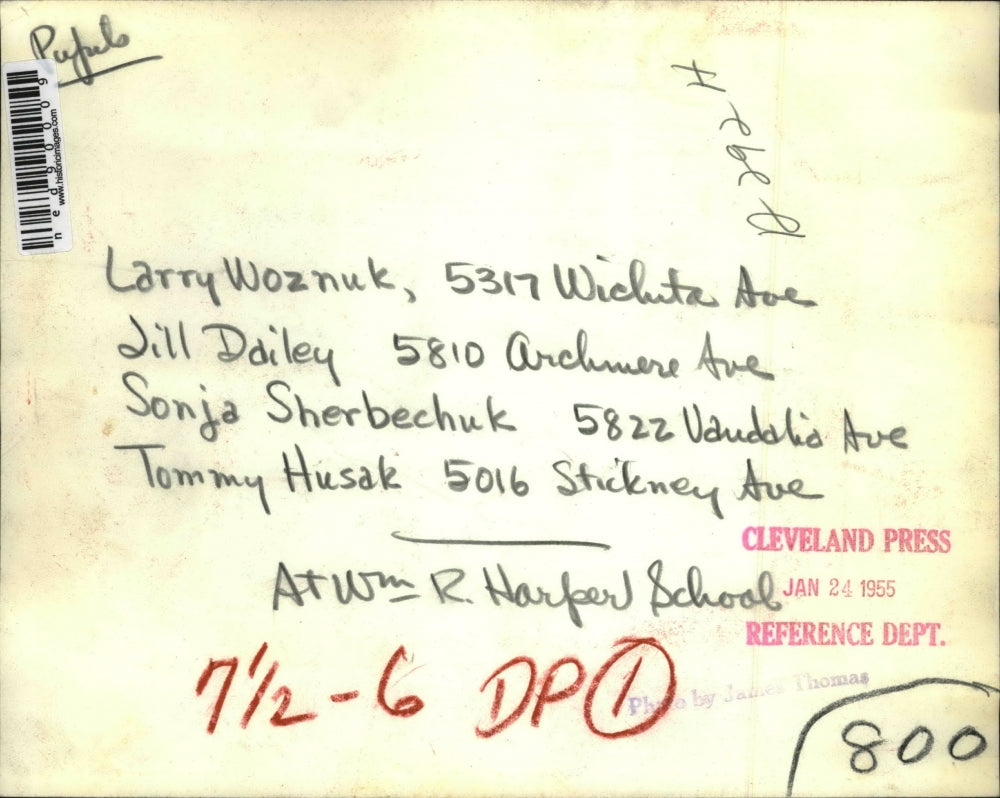 Pupils
n e d 9 0 0 0 9
www.historicimages.com
Larry Woznuk, 5317 Wichita Ave
Jill Dailey 5810 Archmere Ave
Sonja Sherbechuk 5822 Vandalia Ave
Tommy Husak 5016 Stickney Ave
At Wm R. Harper School
CLEVELAND PRESS
JAN 24 1955
REFERENCE DEPT.
7 1/2 - 6 DP 1
Photo by James Thomas
800